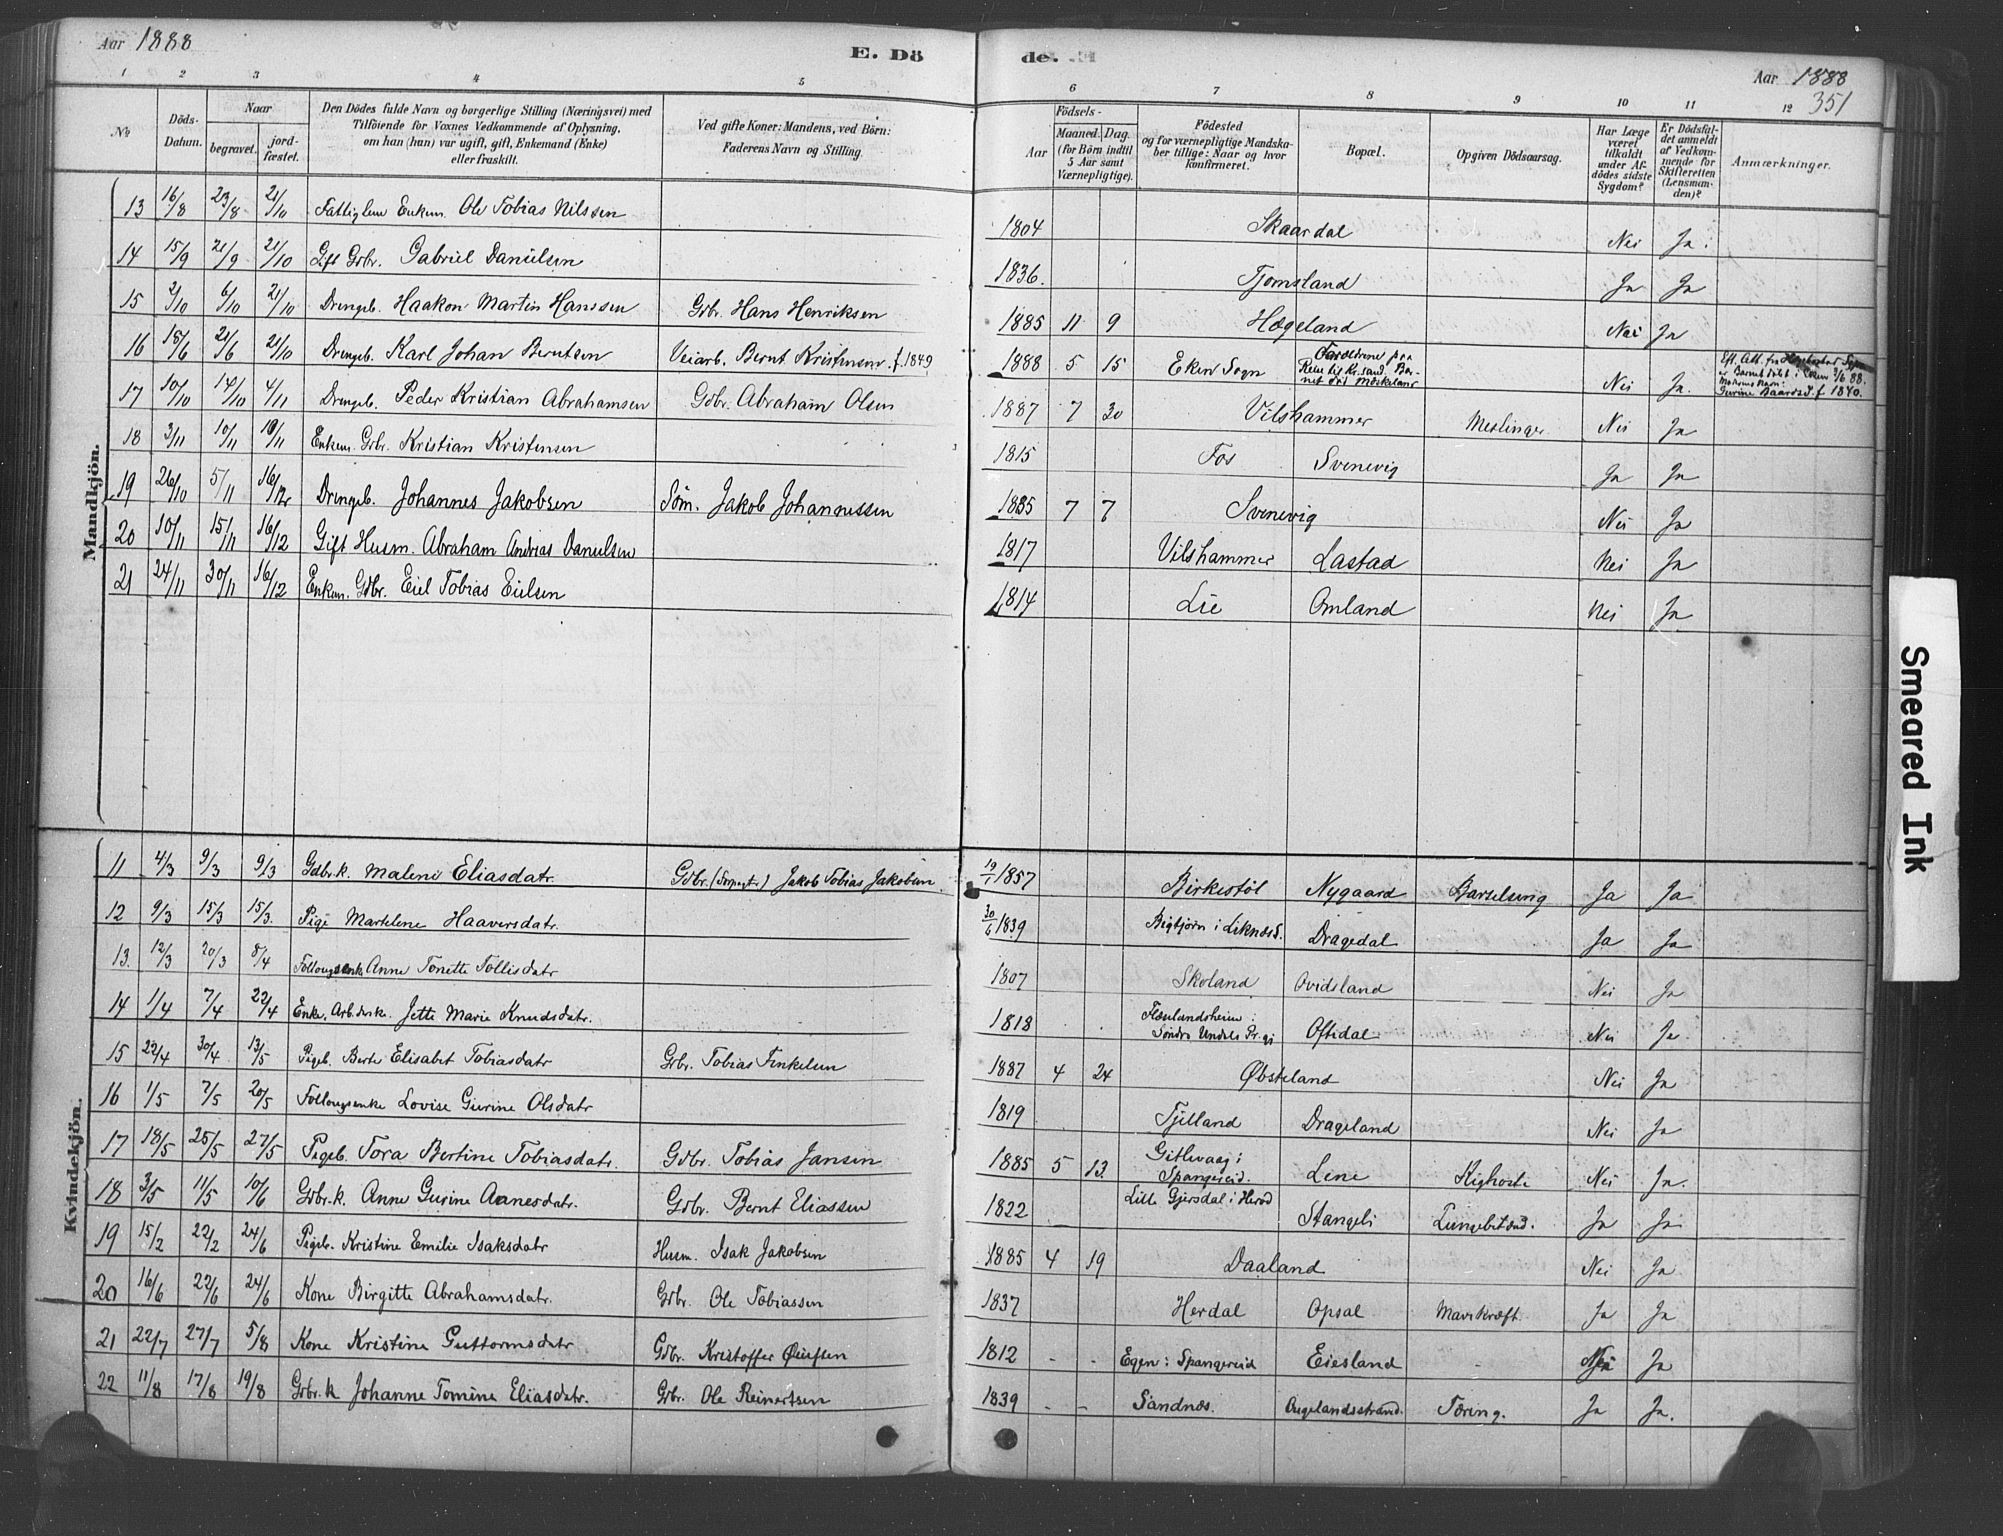 Aar 1888
E. Dö
de.
Aar 1888
351
1 2 3 4 5 6 7 8 9 10 11 12
No
Döds-Datum.
Naar
begravet.
jord-fæstet.
Den Dödes fulde Navn og borgerlige Stilling (Næringsvei) med
Tilföiende for Voxnes Vedkommende af Oplysning,
om han (hun) var ugift, gift, Enkemand (Enke)
eller fraskilt.
Ved gifte Koner: Mandens, ved Börn:
Faderens Navn og Stilling.
Aar
Födsels-
Maaned. Dag.
(for Börn indtil
5 Aar samt
Værnepligtige).
Födested
og for værnepligtige Mandska-
ber tillige: Naar og hvor
konfirmeret.
Bopæl.
Opgiven Dödsaarsag.
Har Læge
været
tilkaldt
under Af-
dödes sidste
Sygdom?
Er Dödsfal-
det anmeldt
af Vedkom-
mende for
Skifteretten
(Lensman-
den)?
Anmærkninger.
Mandkjön.
13 16/8 23/8 21/10 Fattiglem Enkem. Ole Tobias Nilssen 1804 Skaardal Nei Ja
14 15/9 21/9 21/10 Gift Gbr. Gabriel Danielsen 1836. Tjomsland Ja Ja
15 2/10 6/10 21/10 Drengeb. Haakon Martin Hanssen Gbr. Hans Henriksen 1885 11 9 Hægeland Nei Ja
16 15/6 21/6 21/10 Drengeb. Karl Johan Berntsen Veiarb. Bernt Kristensen f. 1849 1888 5 15 Eken Sogn Forældrene paa Reise til Kr.sand. Bar- net død Møskeland Nei Ja. Eft. Att. fra Hægebostad Sogn er Barnet døbt i Eken 3/6 88. Moderens Navn: Gurine Baardsd. f. 1840.
17 10/10 14/10 4/11 Drengeb. Peder Kristian Abrahamsen Gdbr. Abraham Olsen 1887 7 30 Vilshammer Meslinger Nei Ja
18 3/11 10/11 10/11 Enkem. Gdbr. Kristian Kristensen 1815 Fos Svenevig Ja Ja
19 26/10 5/11 16/12 Drengeb. Johannes Jakobsen Søm. Jakob Johannessen 1885 7 7 Svenevig Nei Ja
20 10/11 15/11 16/12 Gift Husm. Abraham Andreas Danielsen 1817 Vilshammer Lastad Nei Ja
21 24/11 30/11 16/12 Enkem. Gdbr. Eiel Tobias Eielsen 1814 Lie Omland Nei Ja
Kvindekjön.
11 4/3 9/3 9/3 Gdbr.k. Malene Eliasdatr. Gdbr. Jakob Tobias Jakobsen. 19/1 1857 Birkestøl Nygaard Barselseng Ja Ja
12 9/3 15/3 15/3. Pige Martelene Haaversdatr. 30/6 1839 Bigtjørn i Liknæs S. Dragedal Ja Ja
13. 12/3 20/3 8/4 Anne Tonette Tollisdatr 1807 Skoland Ovidsland Nei Ja
14 1/4 7/4 22/4 Enke. Jette Marie Knudsdatr. 1818 Søndre Undals Pr.gj Oftedal Nei Ja
15 22/4 30/4 13/5 Pigeb. Berte Elisabet Tobiasdatr Gbr. Tobias Finkelsen 1887 4 24 Øbsteland Nei Ja
16 1/5 7/5 20/5 Lovise Gurine Olsdatr 1819 Tjelland Drageland Nei Ja
17 18/5 25/5 27/5 Pigeb. Tora Bertine Tobiasdatr. Gdbr. Tobias Jansen 1885 5 13. Gitlevaag i Spangereid Lene Kighoste Nei Ja.
18 3/5 11/5 10/6 Gdbr.k. Anne Gurine Aanesdatr. Gdbr. Bernt Eliassen 1822 Lille Gjersdal i Herad Stangeli Lungebetænd. Ja Ja
19 15/2 22/2 24/6 Pigeb. Kristine Emilie Isaksdatr Husm. Isak Jakobsen 1885 4 19 Daaland Nei Ja
20 16/6 22/6 24/6 Kone Birgitte Abrahamsdatr. Gdbr. Ole Tobiassen 1837 Herdal Opsal Mavekræft Ja Ja
21 22/7 27/7 5/8 Kone Kristine Guttormsdatr Gdbr. Kristoffer 1812 - - Egen i Spangereid Eiesland - Ja
22 11/8 17/8 19/8 Gdbr.k Johanne Tomine Eliasdatr. Gdbr. Ole Reinertsen 1839 - - Sandnæs. Augelandsstrand. Tæring. Ja Ja.
Smeared Ink